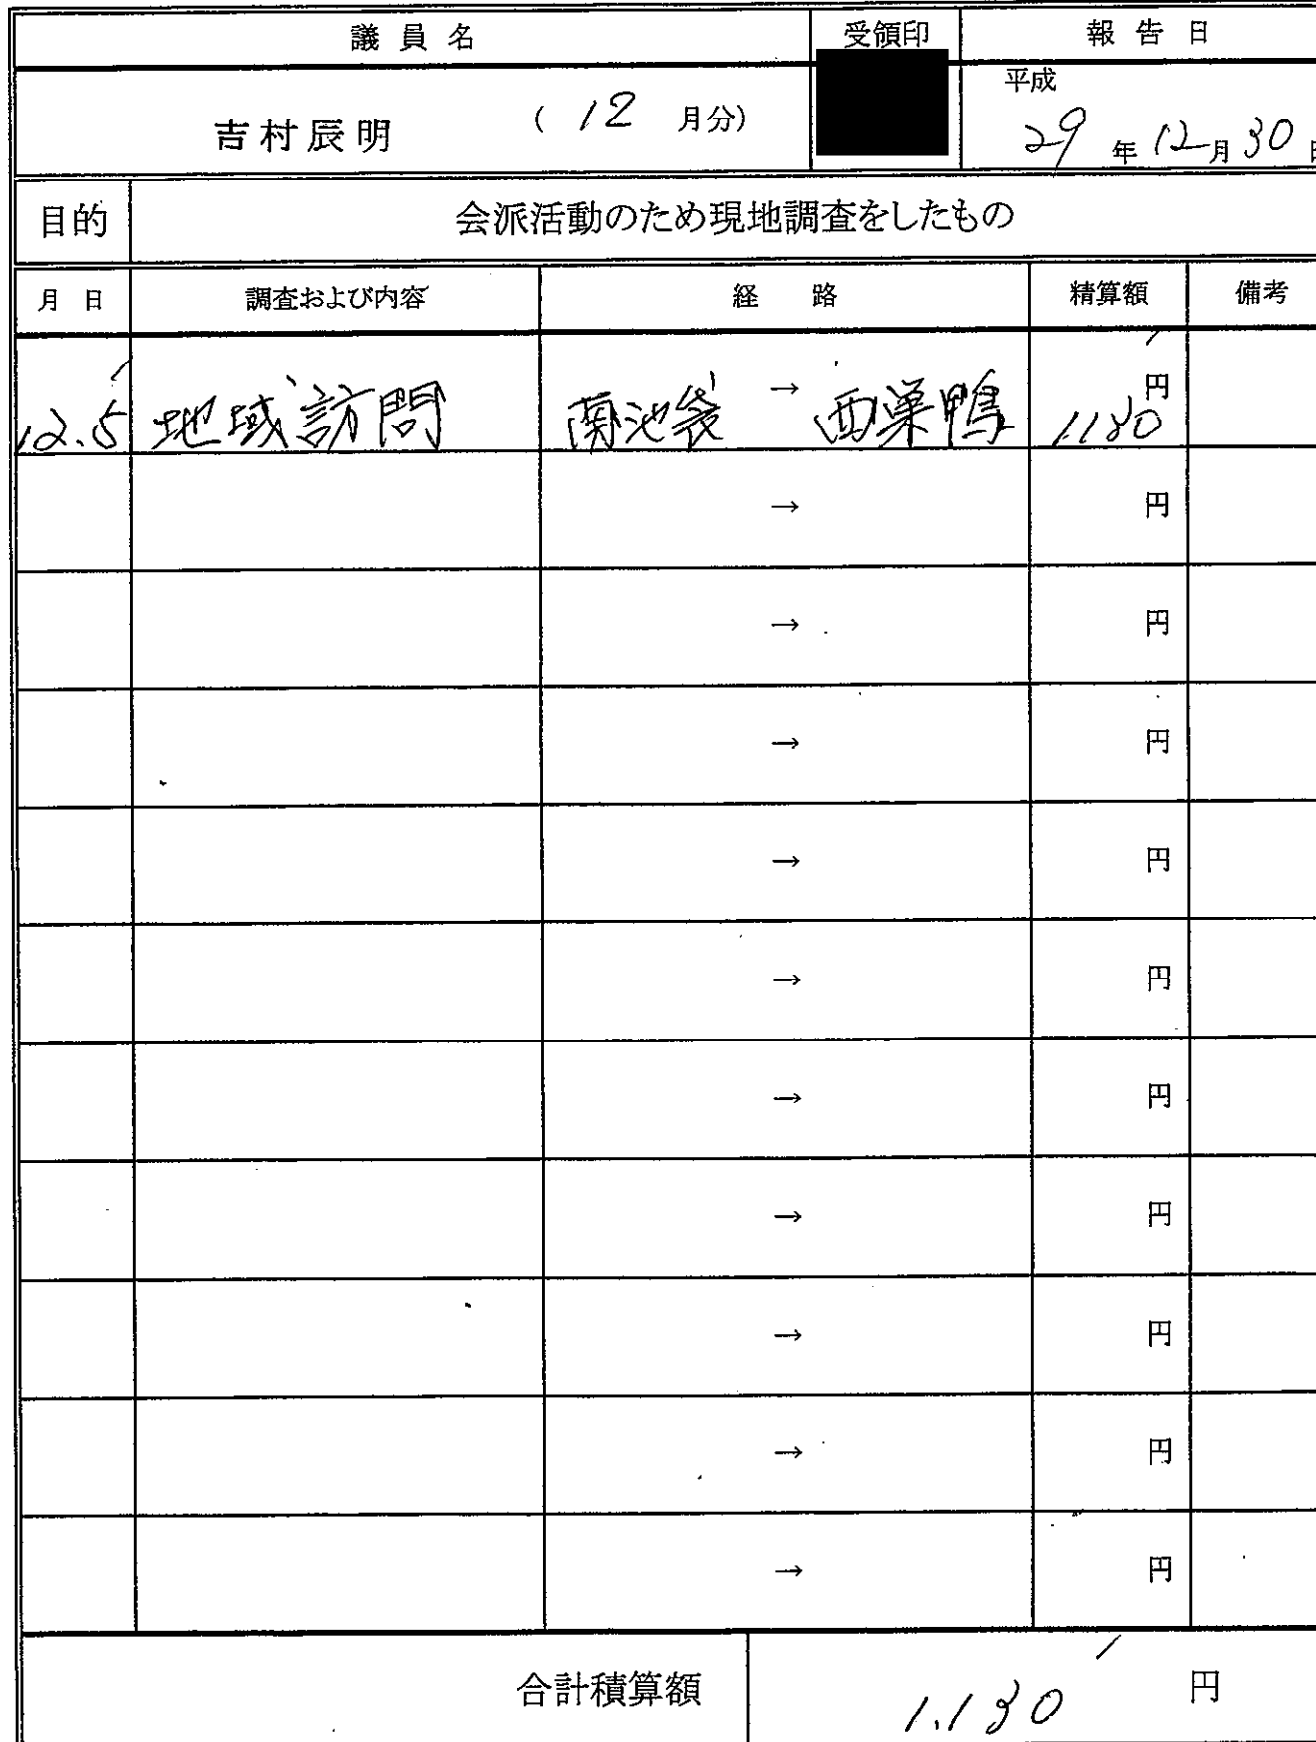 議員名 受領印 報告日
吉村辰明 ( 12 月分) 平成 29 年 12 月 30 日
目的 会派活動のため現地調査をしたもの
月 日 調査および内容 経 路 精算額 備考
12.5 地域訪問 南池袋 → 西巣鴨 1130 円
→ 円
→ 円
→ 円
→ 円
→ 円
→ 円
→ 円
→ 円
→ 円
→ 円
合計積算額 1.130 円